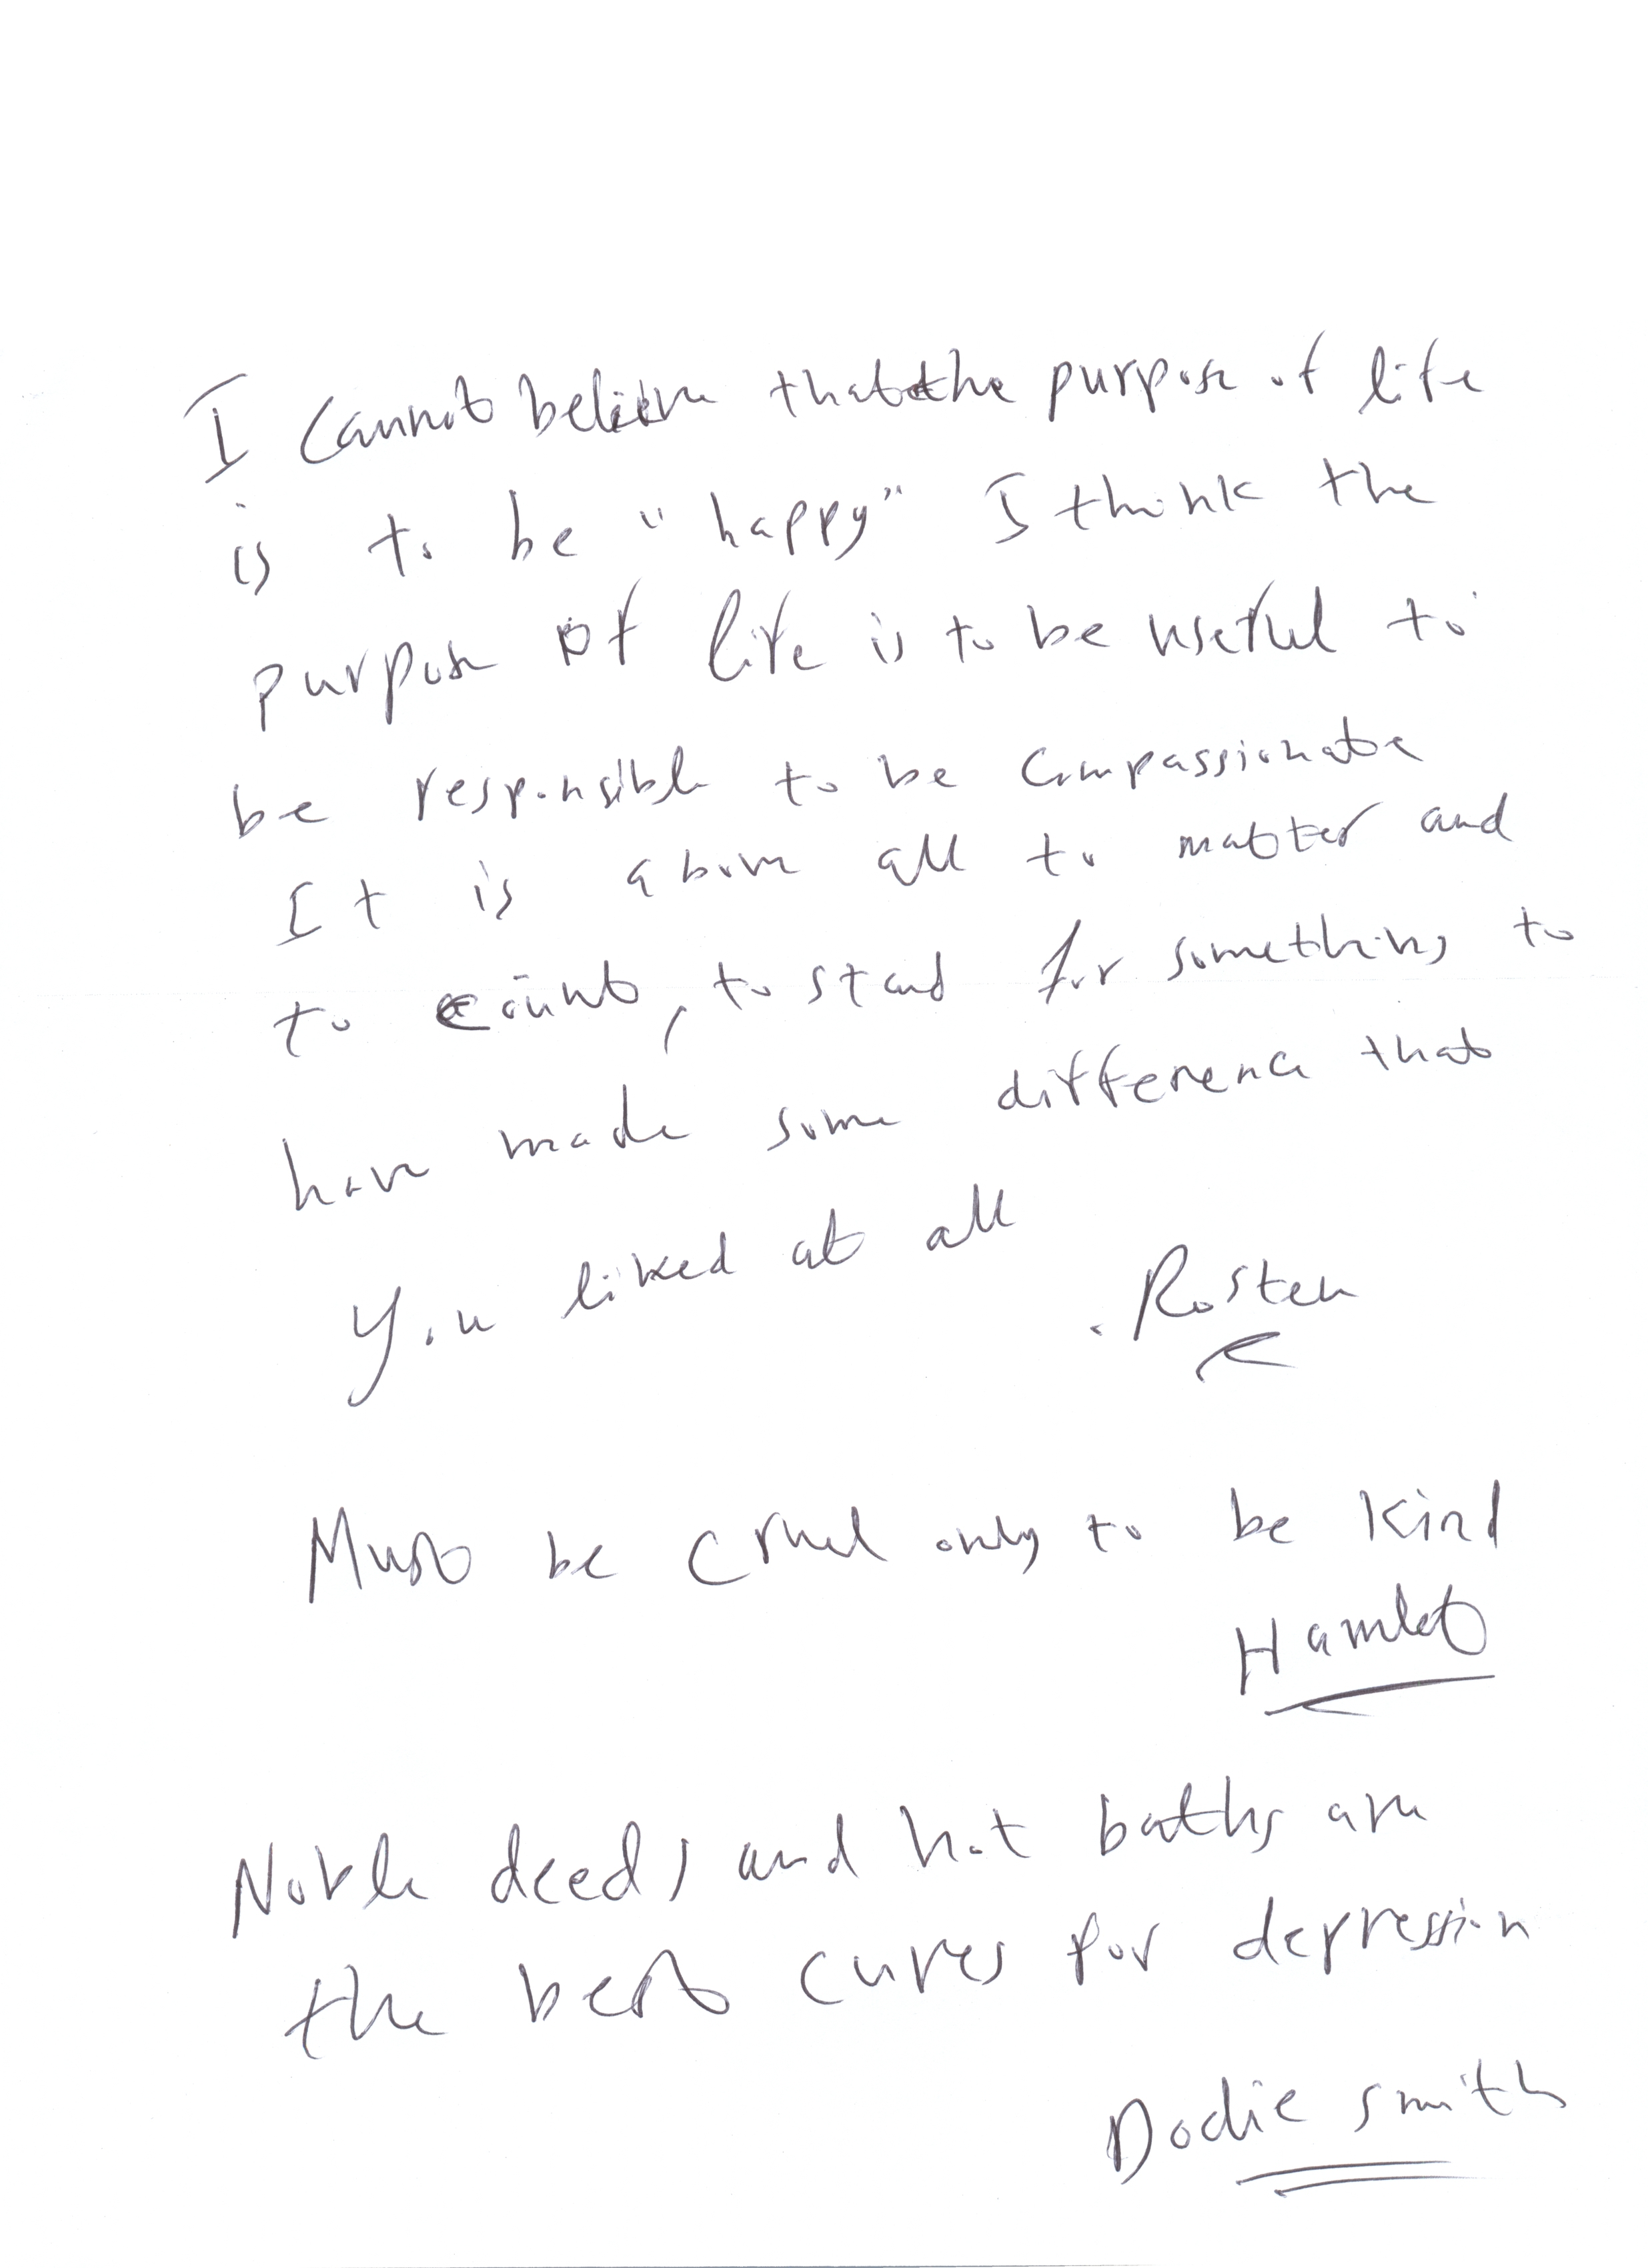 I cannot believe that the purpose of life
is to be "happy" I think the
purpose of life is to be useful to
be responsible to be compassionate
It is above all to matter and
to count, to stand for something to
have made some difference that
you liked at all
. Rosten
Must be cruel only to be kind
Hamlet
Noble deeds and hot baths are
the best cures for depression
Dodie smith